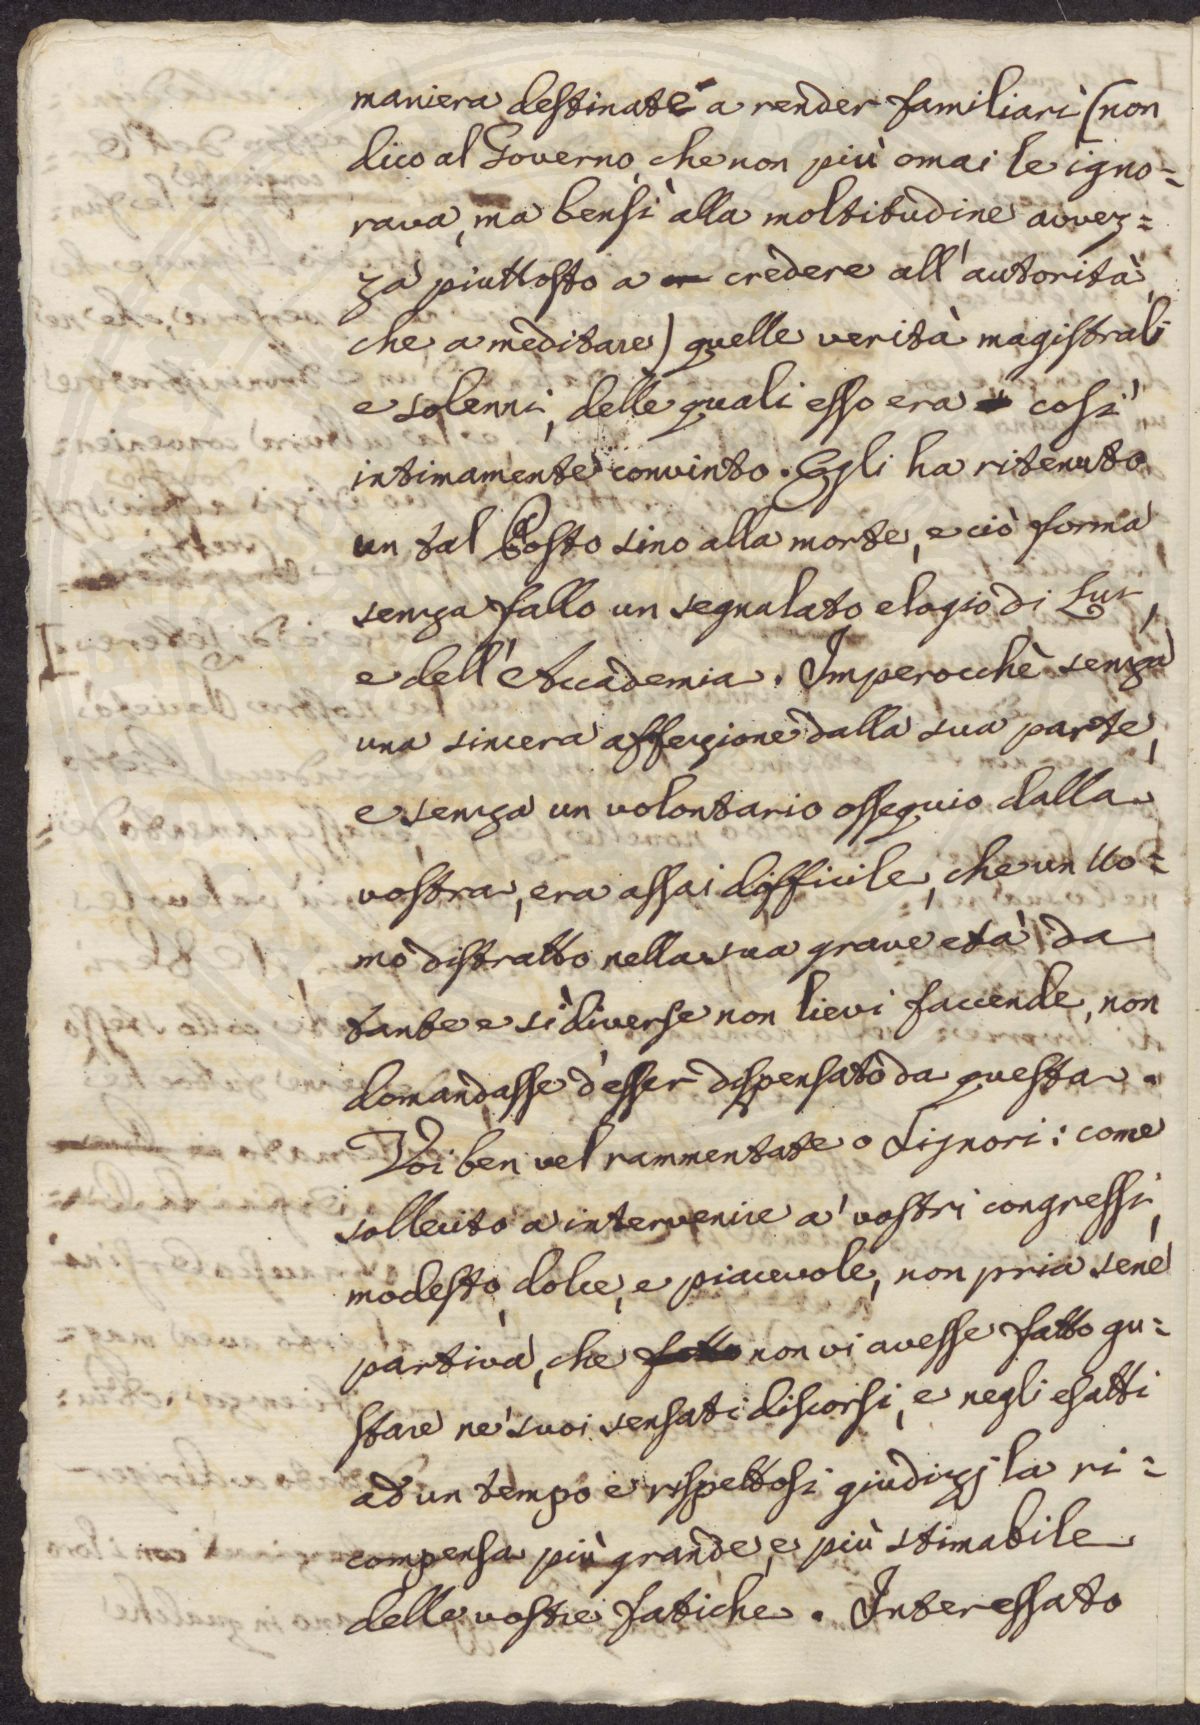 maniera destinate a render familiari (non
dico al Governo, che non più omai le igno=
rava, ma bensì alla moltitudine avvez=
za piuttosto a credere all'autorità,
che a meditare) quelle verità magistrali
e solenni, delle quali esso era così
intimamente convinto. Egli ha ritenuto
un tal Posto sino alla morte, e ciò forma
senza fallo un segnalato elogio di Lui,
e dell'Accademia. Imperocchè senza
una sincera affezione dalla sua parte,
e senza un volontario ossequio dalla
vostra, era assai difficile, che un Uo=
mo distratto nella sua grave età da
tante e sì diverse non lievi faccende, non
domandasse d'esser dispensato da questa.
Voi ben vel rammentate o Signori: come
sollecito a intervenire a' vostri congressi,
modesto, dolce, e piacevole, non pria sene
partiva, che fatto non vi avesse fatto gu=
stare ne' suoi sensati discorsi, e negli esatti
ad un tempo e rispettosi giudizj la ri=
compensa più grande, e più stimabile
delle vostre fatiche. Interessato